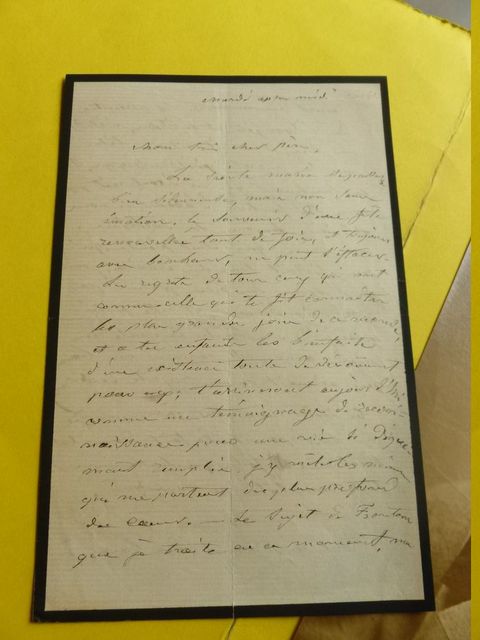 Mardi après midi
Mon très cher père,
La Sainte Marie
bien mais non sans
émotion. Le souvenir d'une fête
renouvelée tant de fois, et toujours
avec bonheur, ne peut s'effacer.
Les regrets de tous ceux qui ont
connu celle que te fit connaître
les plus grandes joies de ce monde,
et a tes enfants les bienfaits
d'une existence toute de dévouement
pour eux, t'arriveront aujourd'hui
comme un témoignage de recon-
naissance pour une vie si digne-
ment remplie. J'y
qui me partent du plus profond
du cœur. — Le sujet de
que je traite en ce moment, me